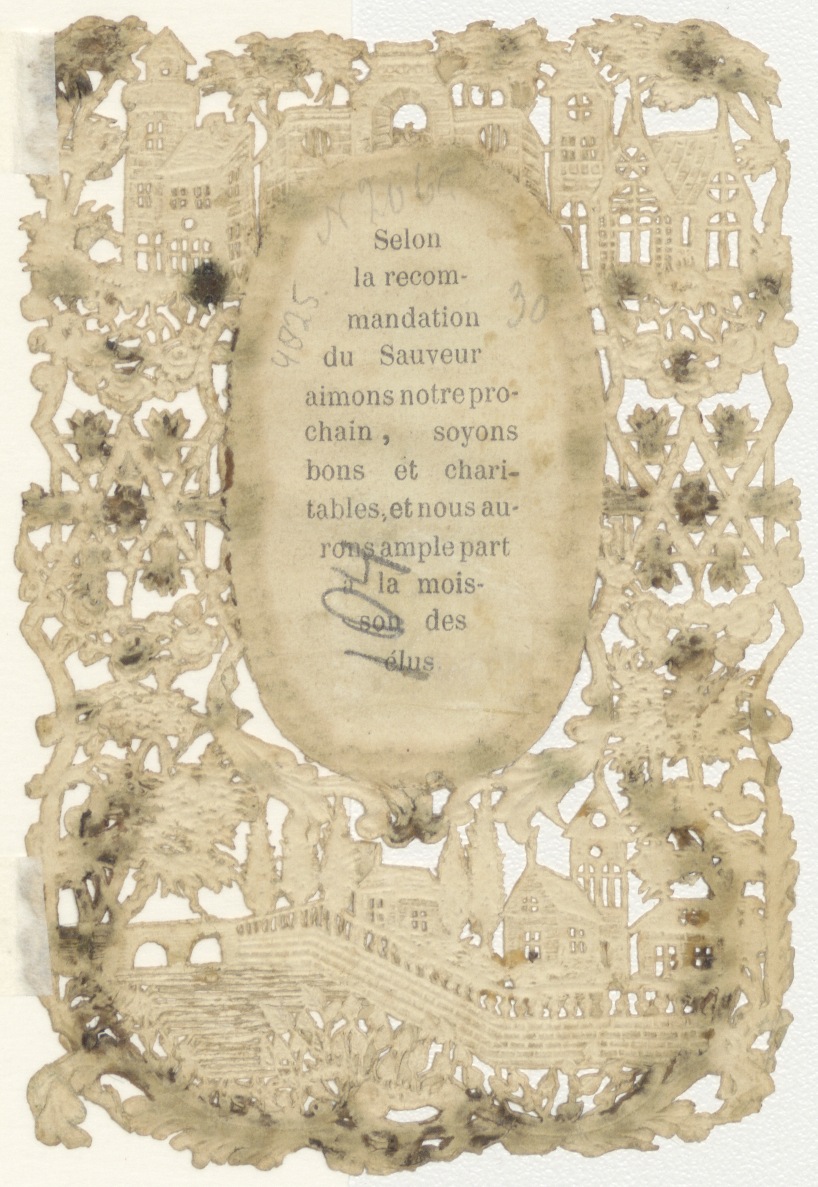 N 206
Selon
la recom-
4825
30
mandation
du Sauveur
aimons notre pro-
chain, soyons
bons et chari-
tables, et nous au-
rons ample part
à la mois-
son des
élus
104